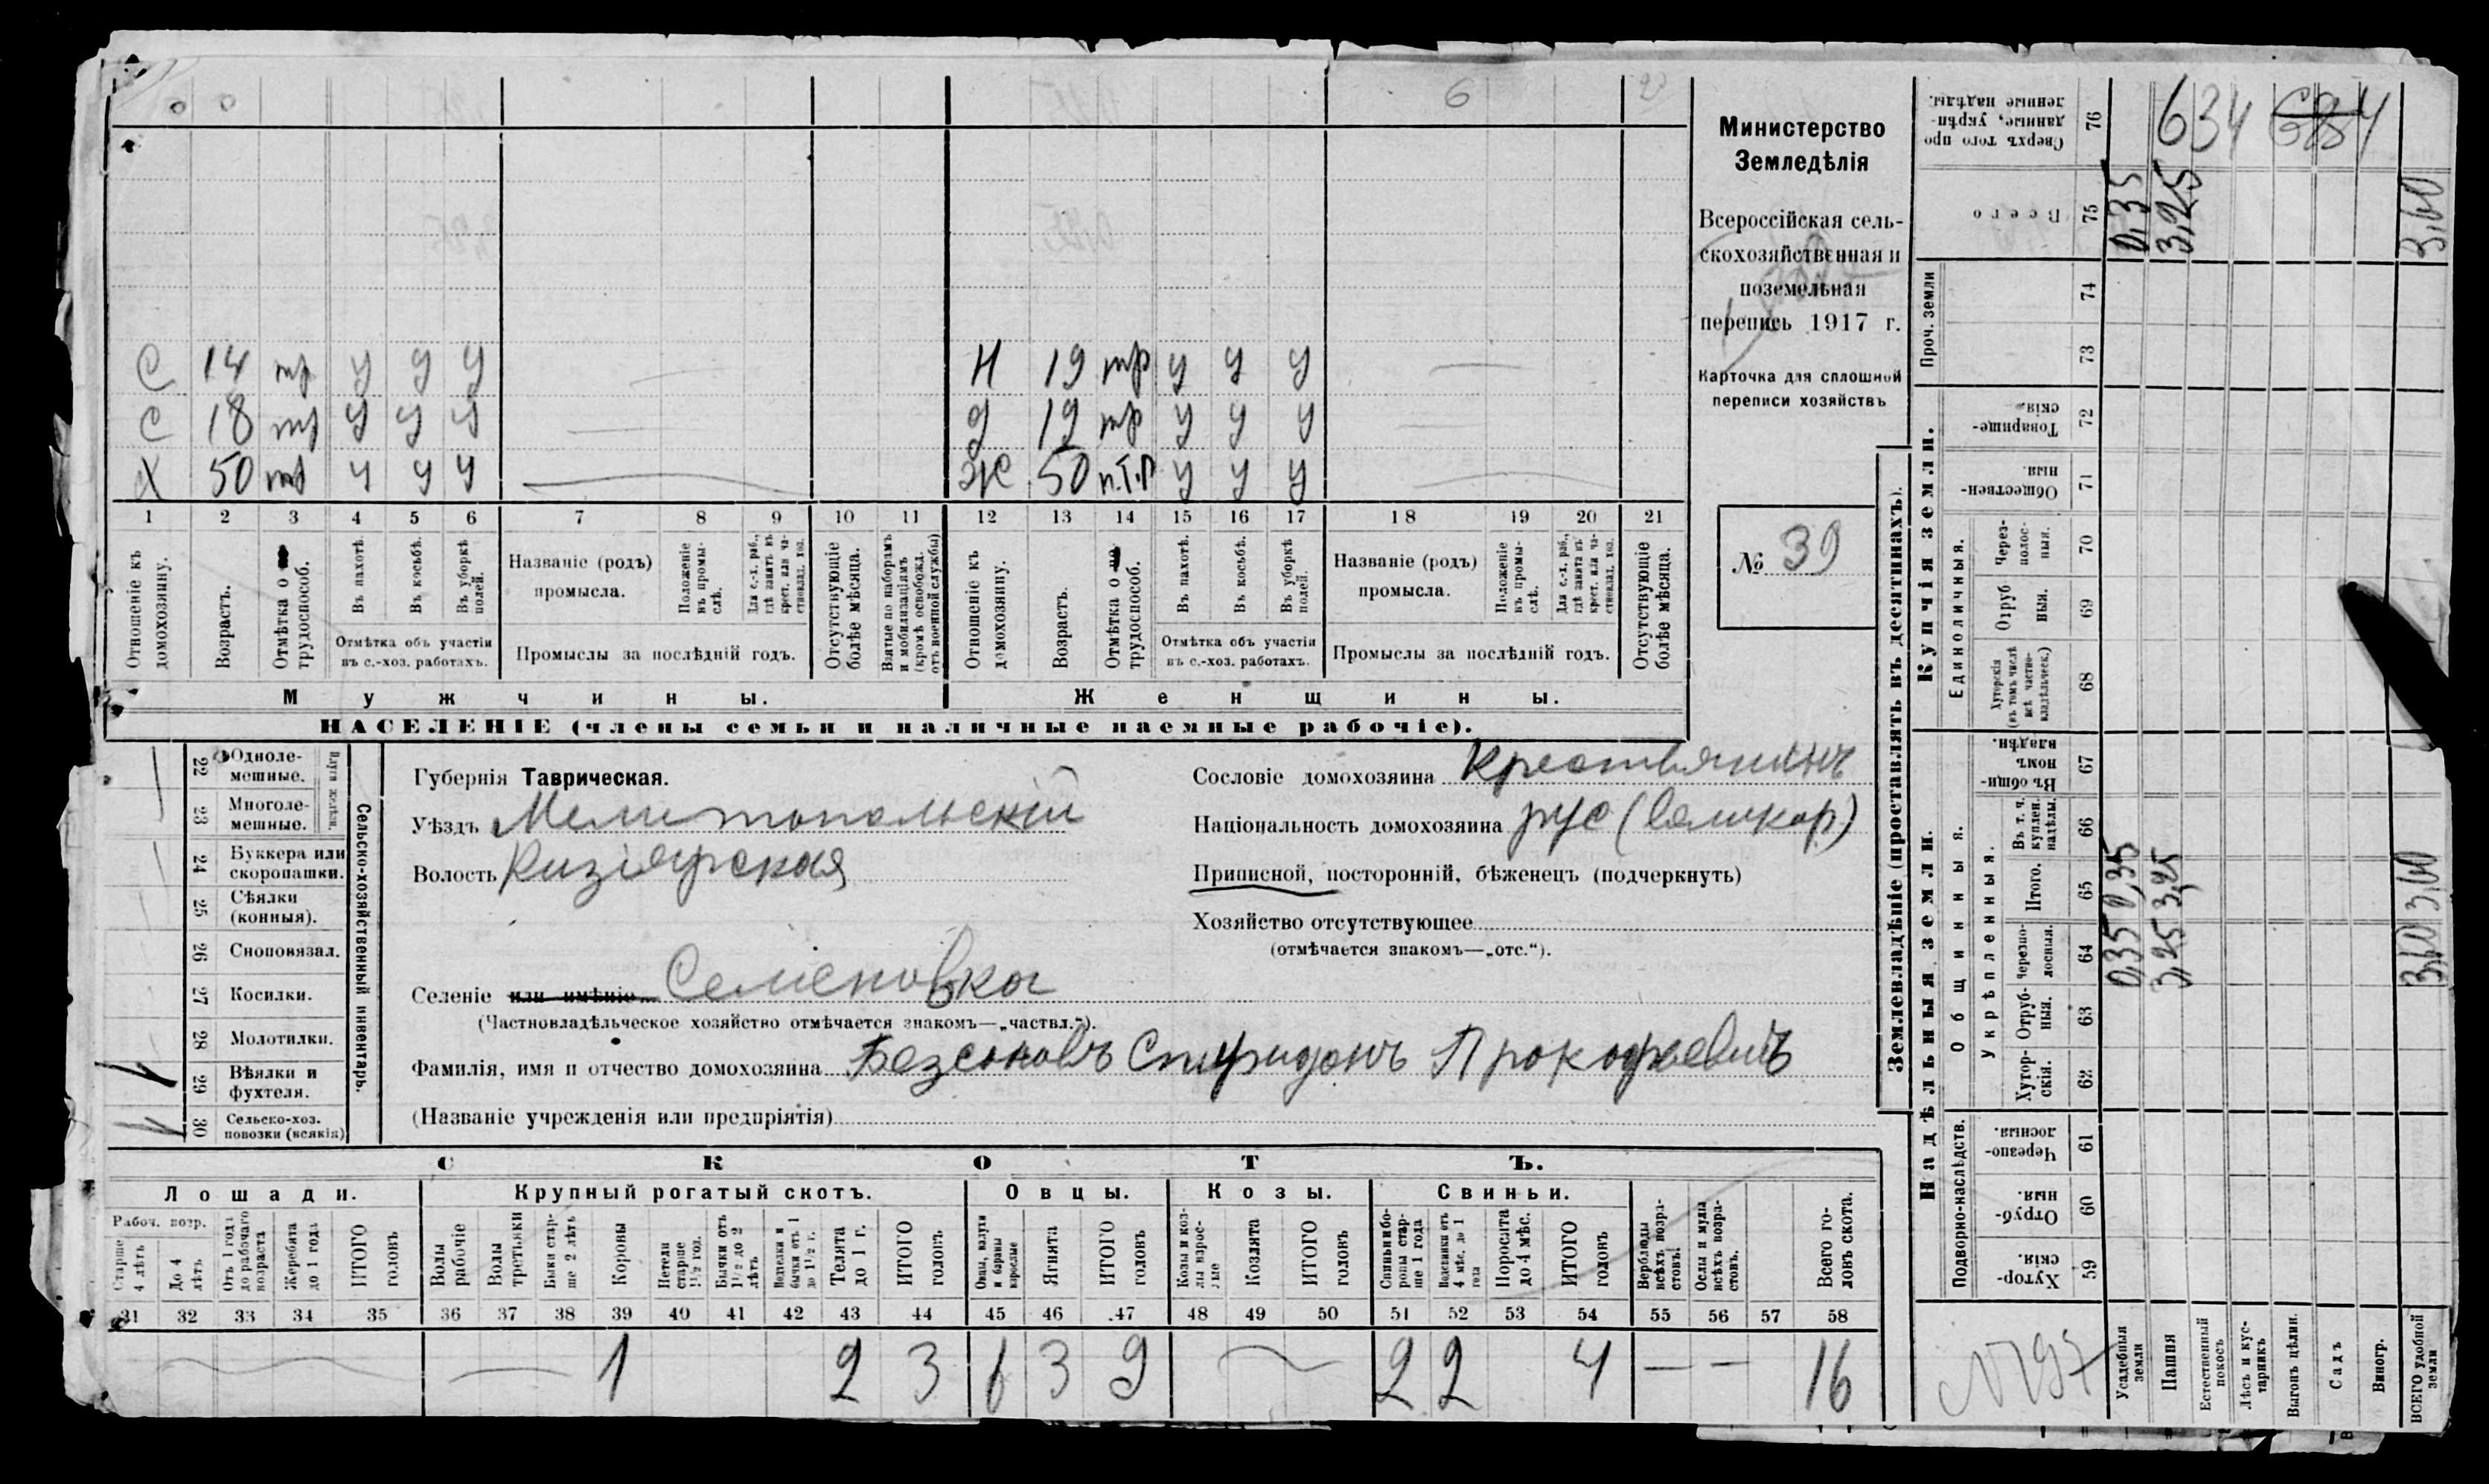 0 0 6
С 14 тр у у у — Н 19 тр у у у —
С 18 тр у у у — д 19 тр у у у —
Х 50 тр у у у — Ж 50 п.т.р у у у —
1 2 3 4 5 6 7 8 9 10 11 12 13 14 15 16 17 18 19 20 21
Отношеніе къ домохозяину.
Возрастъ.
Отмѣтка о трудоспособ.
Въ пахотѣ.
Въ косьбѣ.
Въ уборкѣ полей.
Отмѣтка объ участіи въ с.-хоз. работахъ.
Названіе (родъ) промысла.
Положеніе въ промыслѣ.
Для с.-х. раб., гдѣ занятъ въ крест. или частновлад. хоз.
Промыслы за послѣдній годъ.
Отсутствующіе болѣе мѣсяца.
Взятые по наборамъ и мобилизаціямъ (кромѣ освобожд. отъ военной службы)
Отношеніе къ домохозяину.
Возрастъ.
Отмѣтка о трудоспособ.
Въ пахотѣ.
Въ косьбѣ.
Въ уборкѣ полей.
Отмѣтка объ участіи въ с.-хоз. работахъ.
Названіе (родъ) промысла.
Положеніе въ промыслѣ.
Для с.-х. раб., гдѣ занята въ крест. или частновлад. хоз.
Промыслы за послѣдній годъ.
Отсутствующіе болѣе мѣсяца.
Мужчины. Женщины.
НАСЕЛЕНІЕ (члены семьи и наличные наемные рабочіе).
Министерство
Земледѣлія
Всероссійская сель-
скохозяйственная и
поземельная
перепись 1917 г.
Карточка для сплошной
переписи хозяйствъ
№ 39
22 Одноле-мешные.
23 Многоле-мешные.
Плуги желѣзн.
24 Буккера или скоропашки.
25 Сѣялки (конныя).
26 Сноповязал.
27 Косилки.
28 Молотилки.
29 Вѣялки и фухтеля. 1
30 Сельско-хоз. повозки (всякія) 1
Сельско-хозяйственный инвентарь.
Губернія Таврическая.
Уѣздъ Мелитопольскій
Волость Кизіярская
Селеніе или имѣніе Семеновка
(Частновладѣльческое хозяйство отмѣчается знакомъ—„частвл.“).
Фамилія, имя и отчество домохозяина Безсоновъ Спиридонъ Прокофьевичъ
(Названіе учрежденія или предпріятія)
Сословіе домохозяина крестьянинъ
Національность домохозяина рус (великор)
Приписной, посторонній, бѣженецъ (подчеркнуть)
Хозяйство отсутствующее
(отмѣчается знакомъ—„отс.“).
СКОТЪ.
Лошади. Крупный рогатый скотъ. Овцы. Козы. Свиньи.
Рабоч. возр.
Старше 4 лѣтъ
До 4 лѣтъ
Отъ 1 года до рабочаго возраста
Жеребята до 1 года
ИТОГО головъ
Волы рабочіе
Волы третьяки
Быки старше 2 лѣтъ
Коровы
Нетели старше 1½ год.
Бычки отъ 1½ до 2 лѣтъ
Подтелки и бычки отъ 1 до 1½ г.
Телята до 1 г.
ИТОГО головъ
Овцы, валухи и бараны взрослые
Ягнята
ИТОГО головъ
Козы и козлы взрослые
Козлята
ИТОГО головъ
Свиньи и боровы старше 1 года
Подсвинки отъ 4 мѣс. до 1 года
Поросята до 4 мѣс.
ИТОГО головъ
Верблюды всѣхъ возрастовъ
Ослы и мулы всѣхъ возрастовъ.
Всего головъ скота.
31 32 33 34 35 36 37 38 39 40 41 42 43 44 45 46 47 48 49 50 51 52 53 54 55 56 57 58
1 2 3 6 3 9 2 2 4 — — 16
Землевладѣніе (проставлять въ десятинахъ).
Надѣльныя земли. Купчія земли.
Подворно-наслѣдств.
Общинныя.
Укрѣпленныя.
Единоличныя.
Проч. земли
59 Хуторскія.
60 Отрубныя.
61 Черезполосныя.
62 Хуторскія.
63 Отрубныя.
64 Черезполосныя.
65 Итого.
66 Въ т. ч. куплен. надѣлы.
67 Въ общинномъ владѣн.
68 Хуторскія (въ томъ числѣ всѣ частновладѣльческ.)
69 Отрубныя.
70 Черезполосныя.
71 Общественныя.
72 Товарищескія.
73
74
75 Всего
76 Сверхъ того проданные, укрѣпленные надѣлы.
634 4
Усадебныя земли 0,35 0,35 0,35
Пашня 3,25 3,25 3,25
Естественный покосъ
Лѣсъ и кустарникъ
Выгонъ цѣлин.
Садъ
Виногр.
ВСЕГО удобной земли 3,60 3,60 3,60